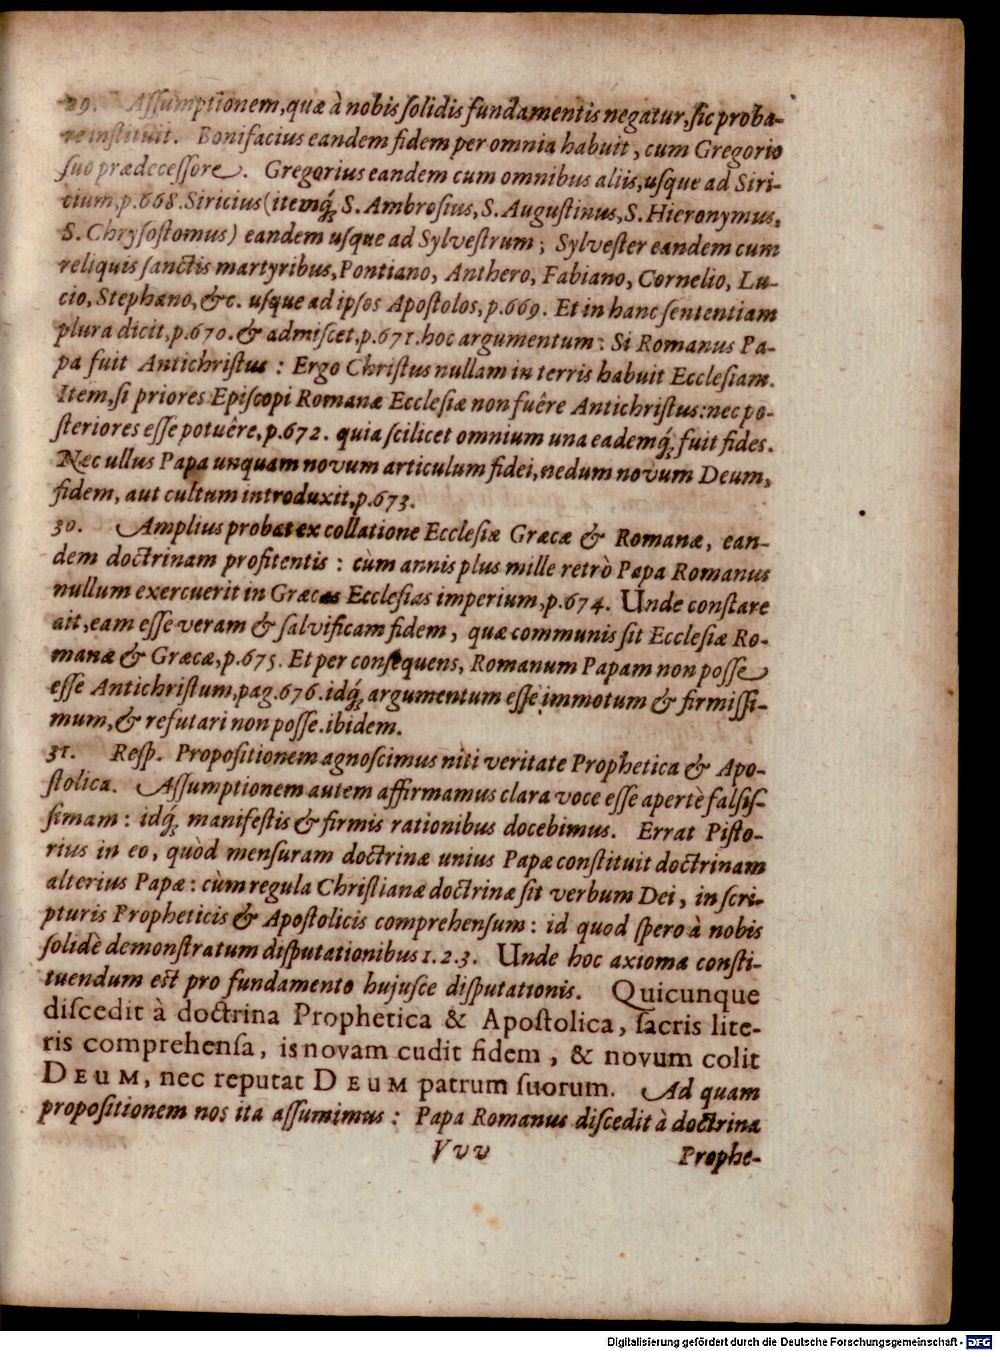 29. Aſſumptionem, quæ à nobis ſolidis fundamentis negatur, ſic proba-
re inſtituit. Bonifacius eandem fidem per omnia habuit, cum Gregorio
ſuo prædeceſſore. Gregorius eandem cum omnibus aliis, uſque ad Siri-
cium, p. 668. Siricius (itemq́; S. Ambroſius, S. Auguſtinus, S. Hieronymus,
S. Chryſoſtomus) eandem uſque ad Sylveſtrum; Sylveſter eandem cum
reliquis ſanctis martyribus, Pontiano, Anthero, Fabiano, Cornelio, Lu-
cio, Stephano, &c. uſque ad ipſos Apoſtolos, p. 669. Et in hanc ſententiam
plura dicit, p. 670. & admiſcet, p. 671. hoc argumentum: Si Romanus Pa-
pa fuit Antichriſtus: Ergo Chriſtus nullam in terris habuit Eccleſiam.
Item, ſi priores Epiſcopi Romanæ Eccleſiæ non fuêre Antichriſtus: nec po-
ſteriores eſſe potuêre, p. 672. quia ſcilicet omnium una eademq́; fuit fides.
Nec ullus Papa unquam novum articulum fidei, nedum novum Deum,
fidem, aut cultum introduxit, p. 673.
30. Amplius probat ex collatione Eccleſiæ Græcæ & Romanæ, ean-
dem doctrinam profitentis: cùm annis plus mille retrò Papa Romanus
nullum exercuerit in Græcas Eccleſias imperium, p. 674. Unde conſtare
ait, eam eſſe veram & ſalvificam fidem, quæ communis ſit Eccleſiæ Ro-
manæ & Græcæ, p. 675. Et per conſequens, Romanum Papam non poſſe
eſſe Antichriſtum, pag. 676. idq́; argumentum eſſe immotum & firmiſſi-
mum, & refutari non poſſe. ibidem.
31. Reſp. Propoſitionem agnoſcimus niti veritate Prophetica & Apo-
ſtolica. Aſſumptionem autem affirmamus clara voce eſſe apertè falſiſ-
ſimam: idq́; manifeſtis & firmis rationibus docebimus. Errat Piſto-
rius in eo, quòd menſuram doctrinæ unius Papæ conſtituit doctrinam
alterius Papæ: cùm regula Chriſtianæ doctrinæ ſit verbum Dei, in ſcri-
pturis Propheticis & Apoſtolicis comprehenſum: id quod ſpero à nobis
ſolidè demonſtratum diſputationibus 1. 2. 3. Unde hoc axioma conſti-
tuendum eſt pro fundamento hujuſce diſputationis. Quicunque
diſcedit à doctrina Prophetica & Apoſtolica, ſacris lite-
ris comprehenſa, is novam cudit fidem, & novum colit
DEUM, nec reputat DEUM patrum ſuorum. Ad quam
propoſitionem nos ita aſſumimus: Papa Romanus diſcedit à doctrina
Vvv Prophe-
Digitalisierung gefördert durch die Deutsche Forschungsgemeinschaft - DFG